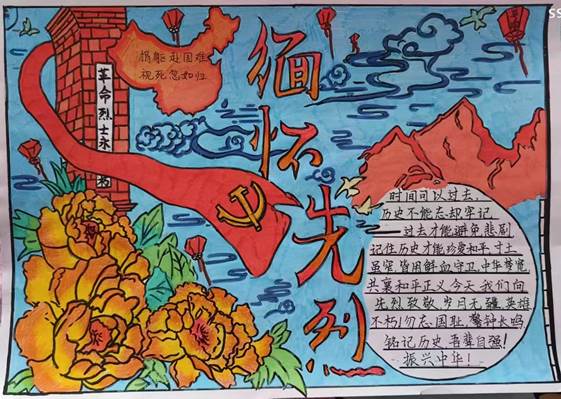 捐躯赴国难
视死忽如归
革命烈士永
缅怀先烈
时间可以过去,
历史不能忘却牢记
过去才能避免悲剧
记住历史才能珍爱和平寸土
虽窄,皆用鲜血守卫,中华梦宽
共襄和平正义今天我们向
先烈致敬岁月无疆英雄
不朽!勿忘国耻警钟长鸣
铭记历史吾辈自强!
振兴中华!